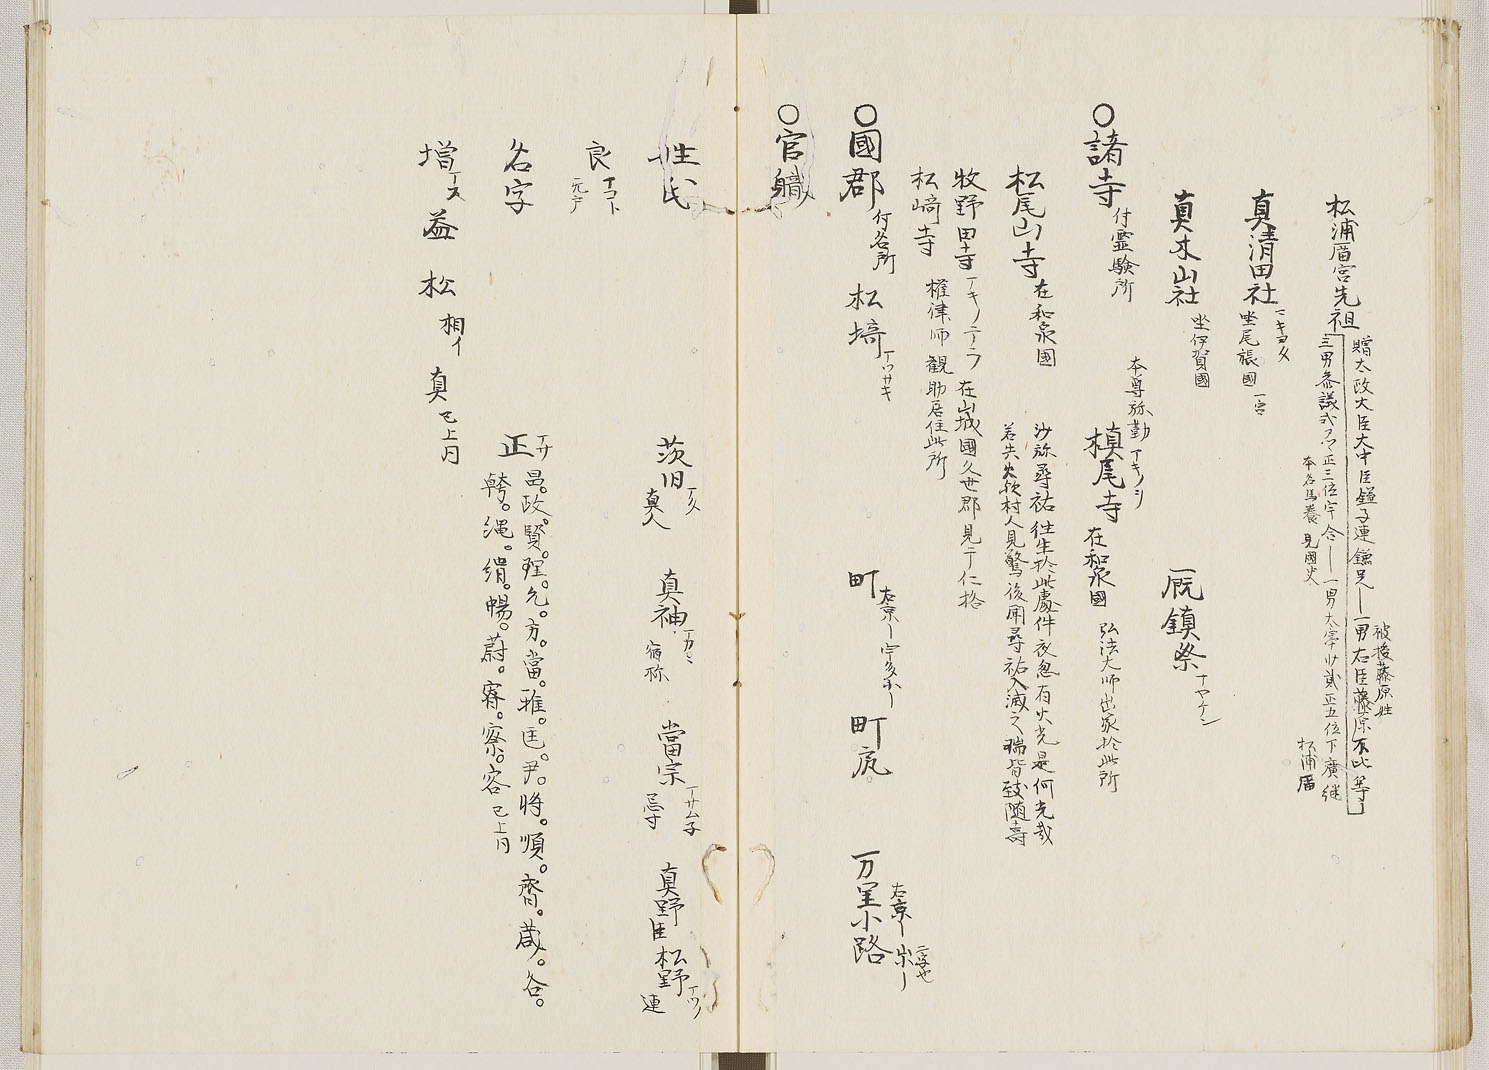 松浦廟宮先祖
贈太政大臣大中臣鎌子連鎌足——一男右臣藤原不比等——
被授藤原姓
三男参議式ア卿正三位宇合——一男太宰少貳正五位下廣継
本名馬養 見國史
松浦廟
真清田社 マキヨタ 坐尾張國 一宮
真木山社 坐伊賀國
厩鎮祭
○諸寺 付霊験所
本尊弥勒
槙尾寺 マキノヲ 在和泉國 弘法大师出家於此所
松尾山寺 在和泉國
沙弥尋祐往生於此處件夜忽有火光是何光哉
若失火欤村人見驚後聞尋祐入滅之瑞皆致随喜
牧野田寺 マキノテラ 在山城國久世郡見于仁拾
松﨑寺 権律师観助居住此所
○國郡 付名所
松埼 マツサキ
町 右京—宇多小—
町尻
万里小路 右京— 出— 二字也
○官軄
姓氏
茨田 マタ 真人
真神 マカミ 宿祢
當宗 マサムネ 忌寸
真野臣
松野 マツノ 連
良 マコト 元户
名字
正 マサ 昌。政。賢。理。允。方。當。雅。匡。尹。將。順。齊。蔵。各。
幹。縄。絹。暢。蔚。容 已上同
増 マス 益 松 相イ 真 已上同